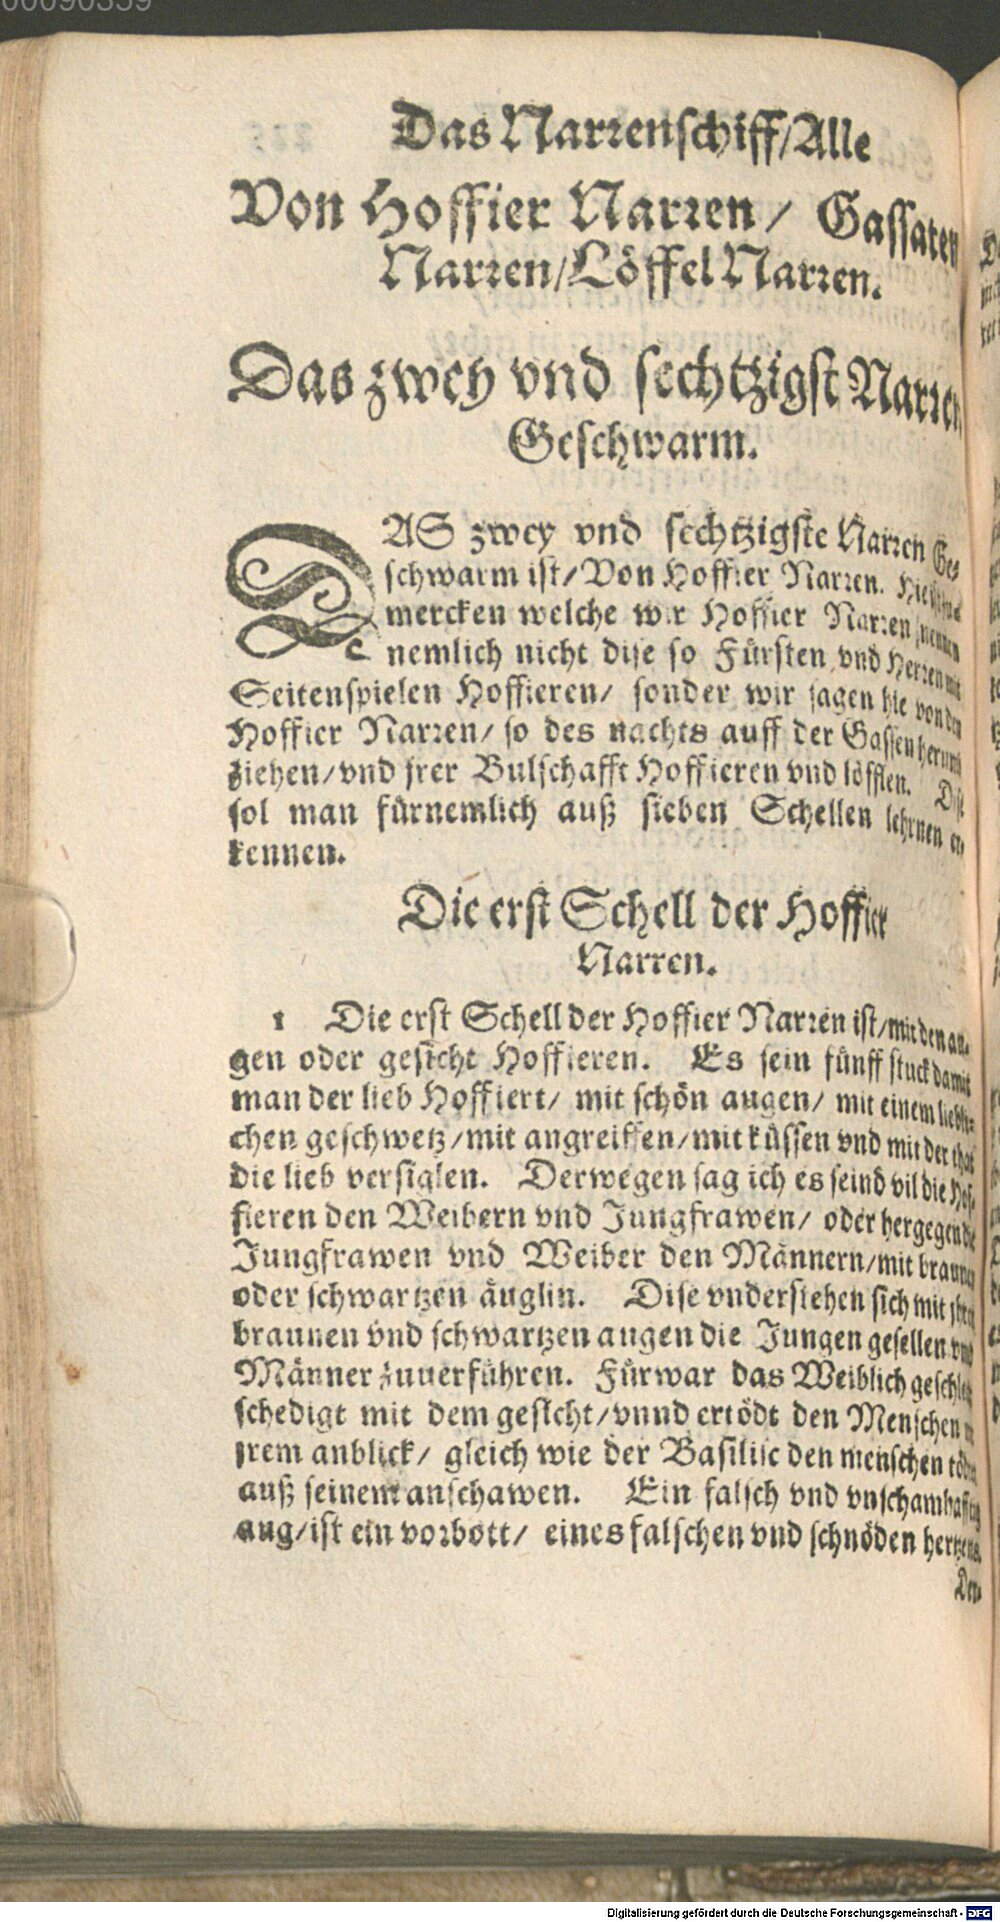 00090359
Das Narrenschiff/Alle
Von Hoffier Narren/ Gassaten
Narren/Löffel Narren.
Das zwey vnd sechtzigst Narren
Geschwarm.
DAS zwey vnd sechtzigste Narren Ge-
schwarm ist/Von Hoffier Narren. Hie
mercken welche wir Hoffier Narren nennen
nemlich nicht dise so Fürsten vnd Herren mit
Seitenspielen Hoffieren/ sonder wir sagen hie von den
Hoffier Narren/ so des nachts auff der Gassen herumb
ziehen/vnd jrer Bulschafft Hoffieren vnd löfflen. Dise
sol man fürnemlich auß sieben Schellen lehrnen er-
kennen.
Die erst Schell der Hoffier
Narren.
1 Die erst Schell der Hoffier Narren ist/mit den au-
gen oder gesicht Hoffieren. Es sein fünff stuck damit
man der lieb Hoffiert/ mit schön augen/ mit einem liebli-
chen geschwetz/mit angreiffen/mit küssen vnd mit der that
die lieb versiglen. Derwegen sag ich es seind vil die Hof-
fieren den Weibern vnd Jungfrawen/ oder hergegen die
Jungfrawen vnd Weiber den Männern/mit braunen
oder schwartzen äuglin. Dise vnderstehen sich mit jhren
braunen vnd schwartzen augen die Jungen gesellen vnd
Männer zuuerführen. Fürwar das Weiblich geschlecht
schedigt mit dem gesicht/vnnd ertödt den Menschen
jrem anblick/ gleich wie der Basilisc den menschen tödt
auß seinem anschawen. Ein falsch vnd vnschamhafftig
aug/ist ein vorbott/ eines falschen vnd schnöden hertzens.
Der-
Digitalisierung gefördert durch die Deutsche Forschungsgemeinschaft - DFG